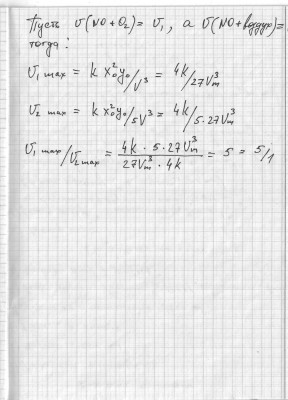 Пусть υ(NO + O₂) = υ₁, а υ(NO + воздух) =
тогда:
υ₁ max = k x₀² y₀ / V³ = 4k / 27Vₘ³
υ₂ max = k x₀² y₀ / 5V³ = 4k / 5·27Vₘ³
υ₁ max / υ₂ max = 4k · 5 · 27Vₘ³ / 27Vₘ³ · 4k = 5 = 5/1